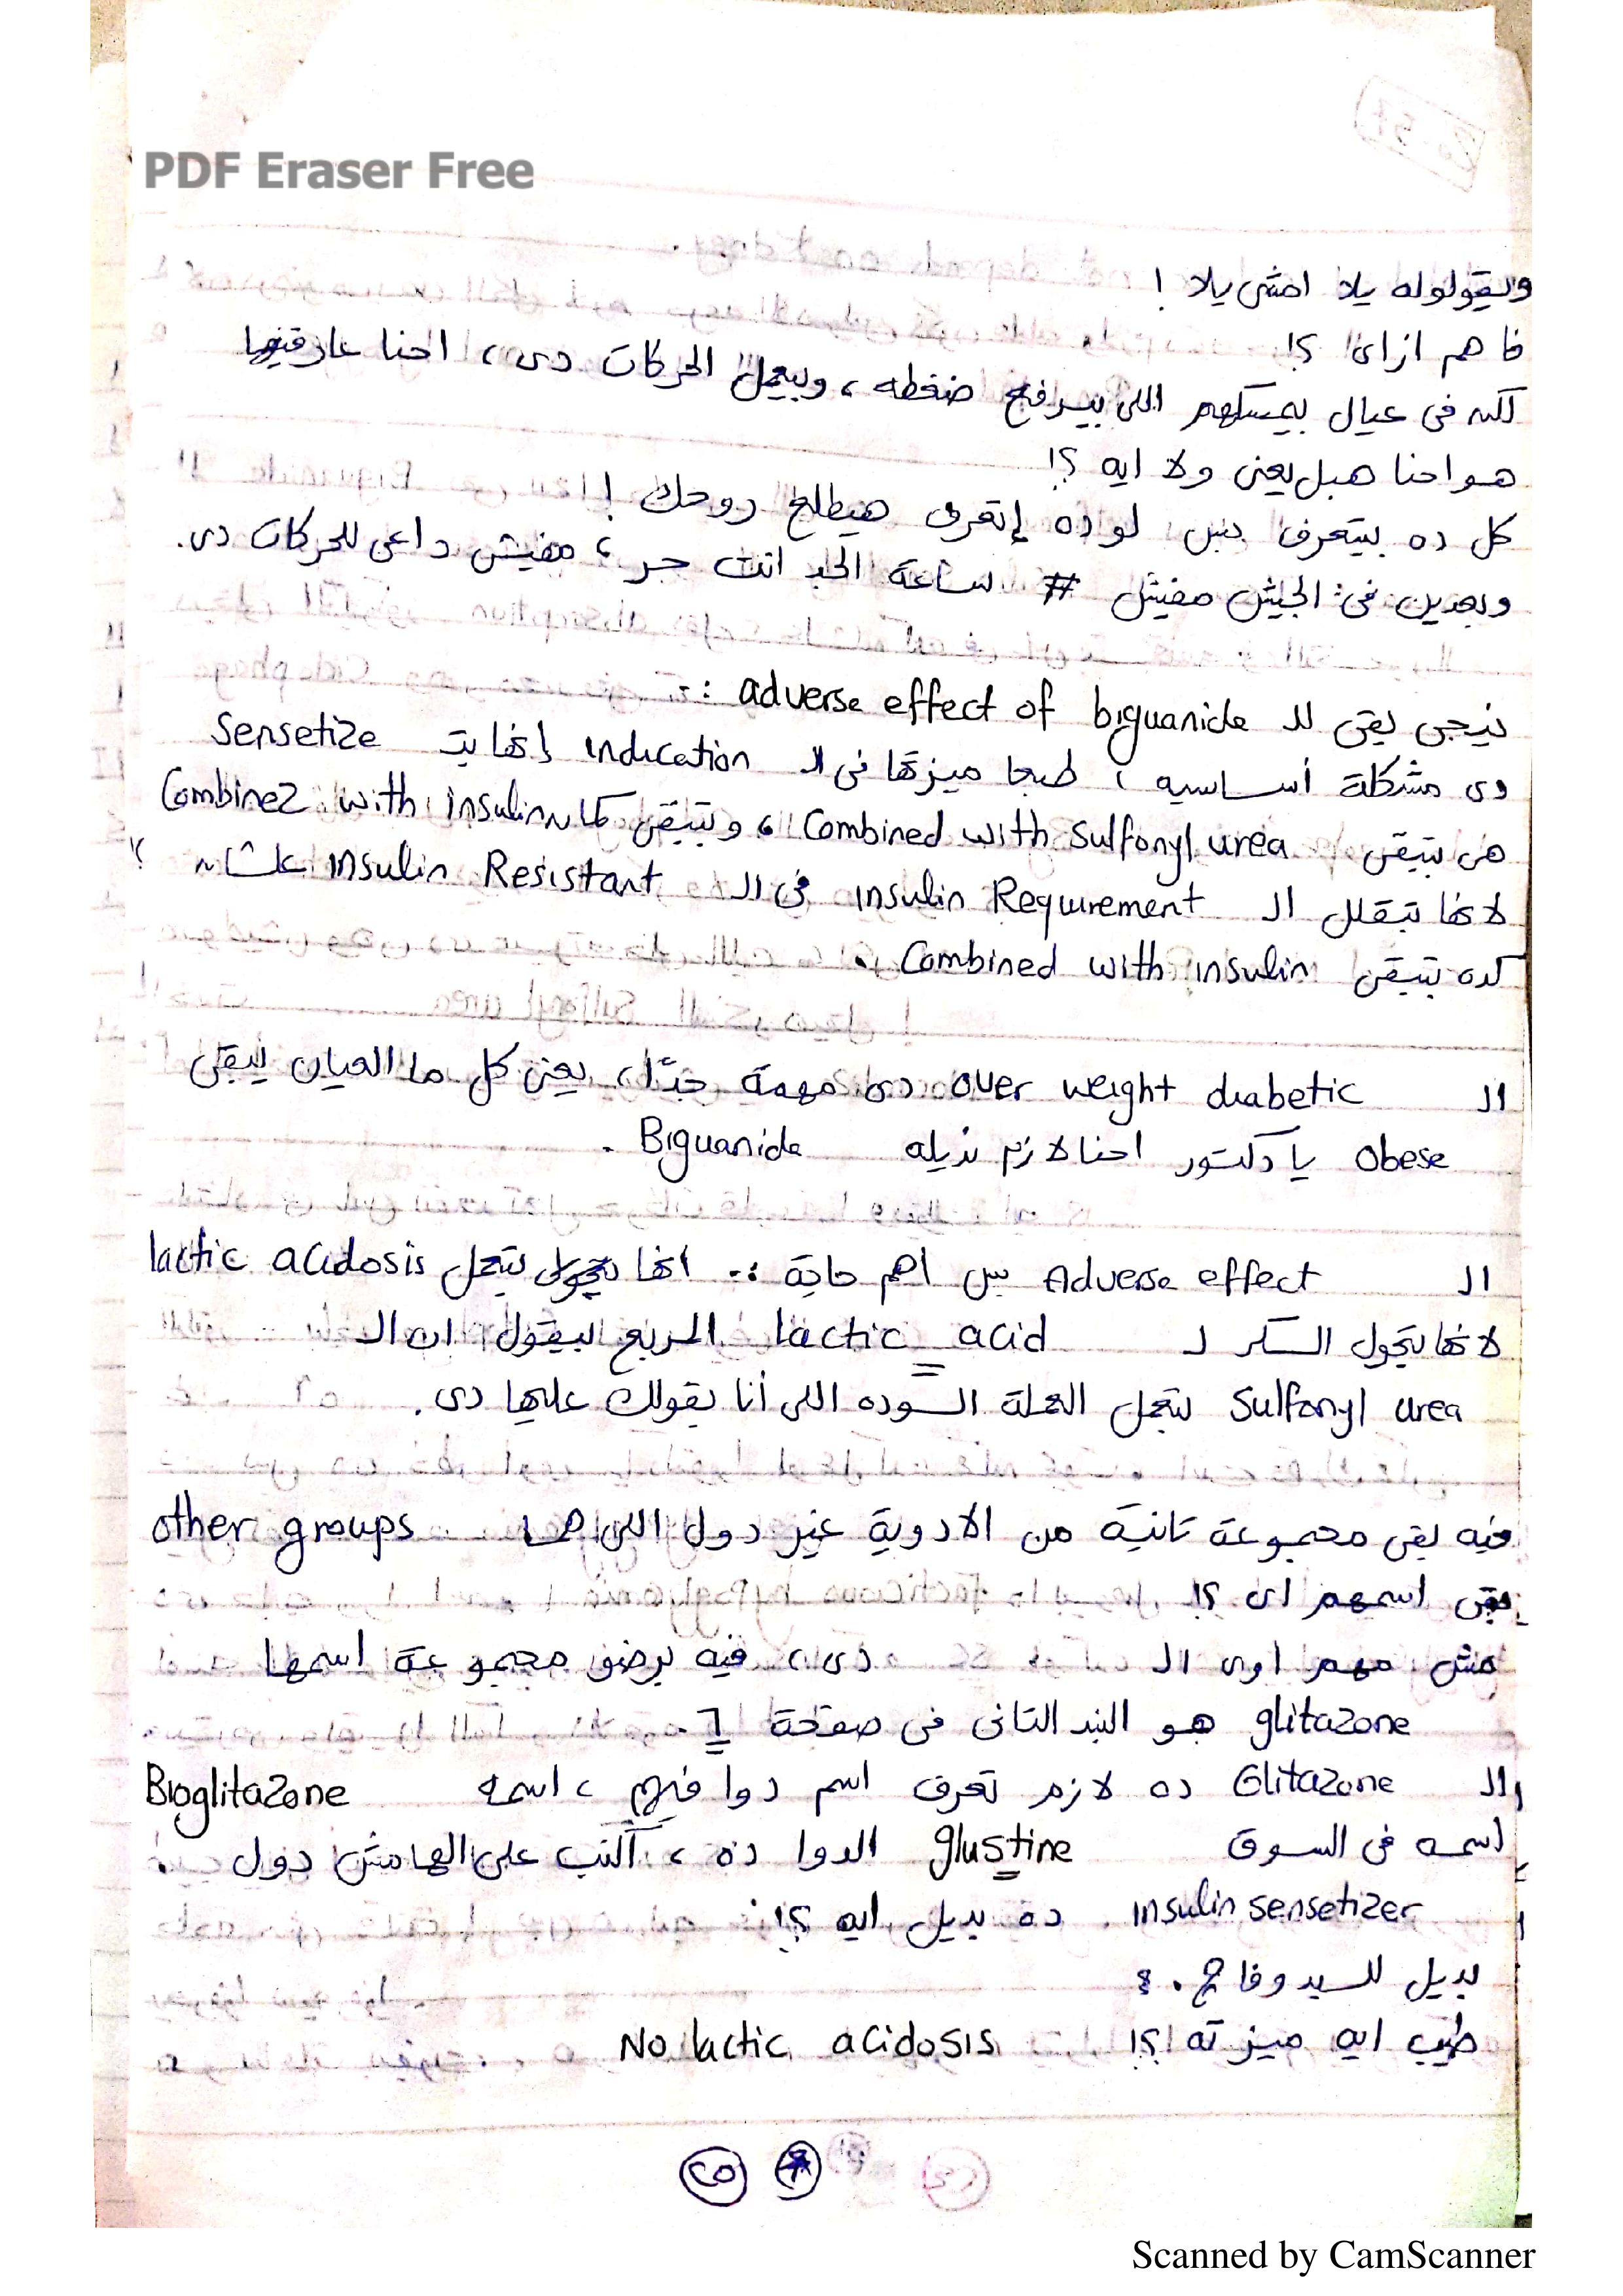 PDF Eraser Free
وبيقولوله يلا امشى يلا !
فاهم ازاى ؟!
لكن فى عيال بيمسكهم اللى بيرفع ضغطه ، وبيعمل الحركات دى ، احنا عارفينها
هو احنا هبل يعنى ولا ايه ؟!
كل ده بيتعرف بس لو ده إتعرف هيطلع روحك !
وبعدين فى الجيش مفيش # ساعة الجد انت حر ، مفيش داعى للحركات دى .
نيجى بقى للـ adverse effect of biguanide :-
دى مشكلة أساسيه ، طبعا ميزتها فى الـ indication إنها بتـ Sensetize
هى بتبقى Combined with Sulfonyl urea ، وبتبقى كمان Combined with insulin
لانها بتقلل الـ insulin Requirement فى الـ insulin Resistant علشان
كده بتبقى Combined with insulin .
الـ over weight diabetic دى مهمة جدًا ، يعنى كل ما العيان يبقى
Obese يا دكتور احنا لازم نديله Biguanide .
الـ Adverse effect بس اهم حاجة :- انها بتعمل lactic acidosis
لانها بتحول السكر لـ lactic acid المربع بيقول ان الـ
Sulfonyl urea بتعمل العملة السوده اللى أنا بقولك عليها دى .
فيه بقى مجموعة تانية من الادوية غير دول اللى هما other groups
بقى اسمهم اى ؟!
مش مهم اوى الـ دى ، فيه برضو مجموعة اسمها
glitazone هو البند التانى فى صفحة ٦ .
والـ Glitazone ده لازم تعرف اسم دوا فيهم ، اسمه Bioglitazone
إسمه فى السوق glustine الدوا ده ، أكتب على الهامش دول
insulin sensetizer ده بديل ايه ؟!
بديل للسيدوفاج .
طيب ايه ميزته ؟! No lactic acidosis
٢٥
Scanned by CamScanner